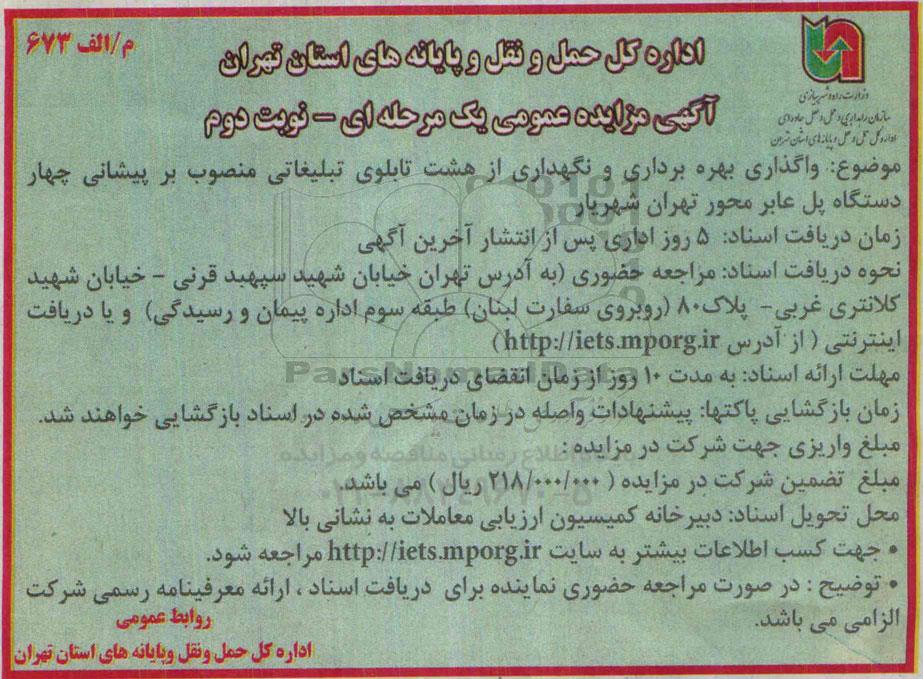 م/الف ۶۷۳
وزارت راه و شهرسازی
سازمان راهداری و حمل و نقل جاده‌ای
اداره کل حمل و نقل و پایانه‌های استان تهران
اداره کل حمل و نقل و پایانه های استان تهران
آگهی مزایده عمومی یک مرحله ای – نوبت دوم
موضوع: واگذاری بهره برداری و نگهداری از هشت تابلوی تبلیغاتی منصوب بر پیشانی چهار
دستگاه پل عابر محور تهران شهریار
زمان دریافت اسناد: ۵ روز اداری پس از انتشار آخرین آگهی
نحوه دریافت اسناد: مراجعه حضوری (به آدرس تهران خیابان شهید سپهبد قرنی – خیابان شهید
کلانتری غربی– پلاک۸۰ (روبروی سفارت لبنان) طبقه سوم اداره پیمان و رسیدگی) و یا دریافت
اینترنتی ( از آدرس http://iets.mporg.ir)
مهلت ارائه اسناد: به مدت ۱۰ روز از زمان انقضای دریافت اسناد
زمان بازگشایی پاکتها: پیشنهادات واصله در زمان مشخص شده در اسناد بازگشایی خواهند شد.
مبلغ واریزی جهت شرکت در مزایده :
مبلغ تضمین شرکت در مزایده ( ۲۱۸/۰۰۰/۰۰۰ ریال ) می باشد.
محل تحویل اسناد: دبیرخانه کمیسیون ارزیابی معاملات به نشانی بالا
• جهت کسب اطلاعات بیشتر به سایت http://iets.mporg.ir مراجعه شود.
• توضیح : در صورت مراجعه حضوری نماینده برای دریافت اسناد ، ارائه معرفینامه رسمی شرکت
الزامی می باشد.
روابط عمومی
اداره کل حمل ونقل وپایانه های استان تهران
ParsNamadData